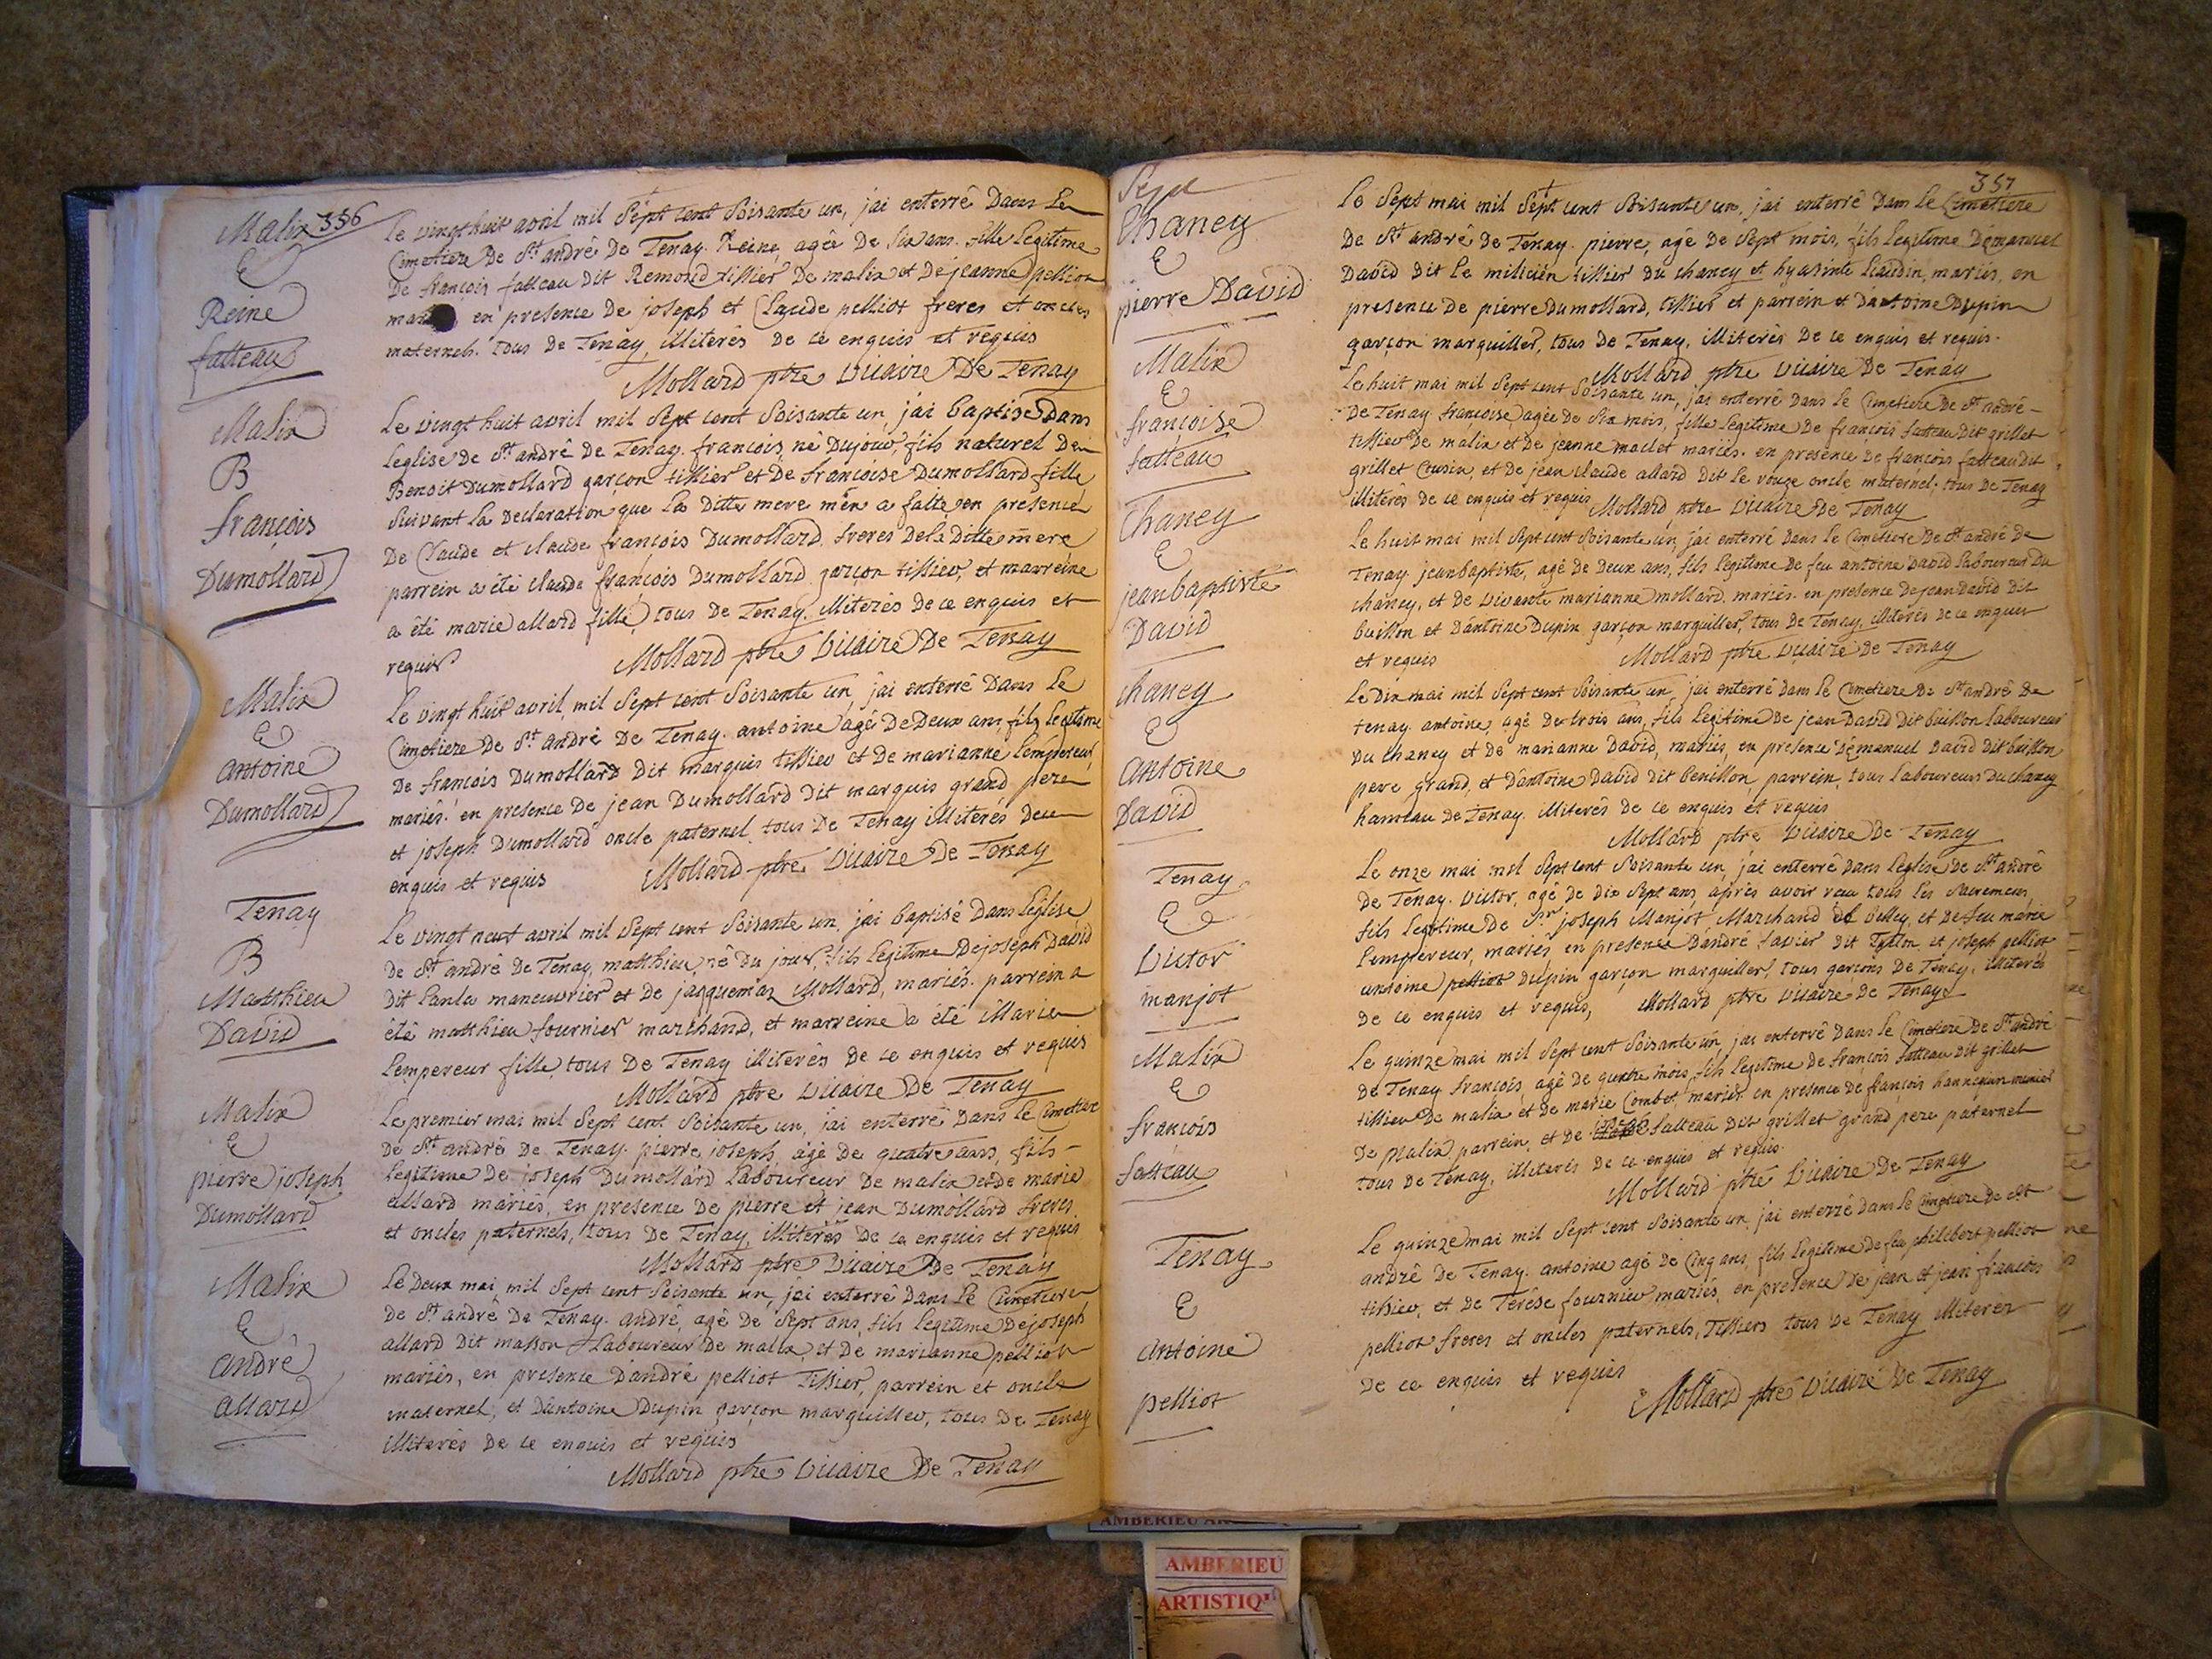 Malix 336
E
Reine
fatteau
Le vingt huit avril mil sept cent soisante un, j'ai enterré dans le
Cimetiere de St andré de Tenay. Reine, agée de six ans. fille legitime
de francois fatteau dit Remond tissier de malix et de jeanne pelliot
en presence de joseph et Claude pelliot freres et oncles
maternels. tous de Tenay, illiterés de ce enquis et requis
Mollard ptre vicaire De Tenay
Malix
B
francois
Dumollard
Le vingt huit avril mil sept cent soisante un j'ai baptisé dans
leglise de St andré de Tenay. francois, né du jour, fils naturel de
Benoit Dumollard garçon tissier et de francoise Dumollard fille
suivant la declaration que la ditte mere m'en a faitte en presence
De Claude et claude francois Dumollard. freres de la ditte mere
parrein a été claude françois Dumollard garçon tissier, et marreine
a été marie allard fille, tous de Tenay. illiterés de ce enquis et
requis
Mollard ptre vicaire De Tenay
Malix
E
antoine
Dumollard
Le vingt huit avril, mil sept cent soisante un, j'ai enterré dans le
Cimetiere de St andré de Tenay. antoine agé de Deux ans, fils legitime
de francois Dumollard dit marquis tissier et de marianne Lempereur,
mariés. en presence de jean Dumollard dit marquis grand pere
et joseph Dumollard oncle paternel tous De Tenay illiterés de ce
enquis et requis
Mollard ptre vicaire De Tenay
Tenay
B
Matthieu
David
Le vingt neuf avril mil sept cent soisante un, j'ai baptisé dans l'église
de St andré de Tenay, matthieu, né du jour, fils legitime de joseph David
dit maneuvrier et de jacquemaz Mollard, mariés. parrein a
été matthieu fournier marchand, et marreine a été Marie
Lempereur fille, tous De Tenay illiterés de ce enquis et requis
Mollard ptre vicaire De Tenay
Malix
E
pierre joseph
Dumollard
Le premier mai mil sept cent soisante un, j'ai enterré dans le Cimetiere
de St andré De Tenay. pierre joseph, agé de quatre ans, fils
legitime de joseph Dumollard Laboureur de malix et de marie
allard mariés, en presence de pierre et jean Dumollard freres
et oncles paternels, tous de Tenay, illiterés de ce enquis et requis
Mollard ptre vicaire De Tenay
Malix
E
andré
allard
Le Deux mai, mil sept cent soisante un, j'ai enterré dans le Cimetiere
de St andré de Tenay. andré, agé de sept ans, fils legitime de joseph
allard dit masson Laboureur de malix, et de marianne pelliot
mariés, en presence d'andré pelliot tissier, parrein et oncle
maternel, et d'antoine Dupin garçon marguiller, tous de Tenay
illiterés de ce enquis et requis
Mollard ptre vicaire De Tenay
357
Sept
Chaney
E
pierre David
Le sept mai mil sept cent soisante un, j'ai enterré dans le Cimetiere
De St andré de Tenay. pierre, agé de sept mois, fils legitime d'emanuel
David dit le milicien tissier du chaney et hyasinte mariés, en
presence de pierre Dumollard, tissier et parrein et d'antoine Dupin
garçon marguiller, tous de Tenay, illiterés de ce enquis et requis.
Mollard ptre vicaire De Tenay
Malix
E
francoise
fatteau
Le huit mai mil sept cent soisante un, j'ai enterré dans le Cimetiere de St andré
De Tenay francoise agée de six mois, fille legitime de francois fatteau dit grillet
tissier de malix et de jeanne maclet mariés. en presence de francois fatteau dit
grillet Cousin, et de jean claude allard dit le rouge oncle maternel, tous de Tenay
illiterés de ce enquis et requis Mollard ptre vicaire De Tenay
Chaney
E
jean baptiste
David
Le huit mai mil sept cent soisante un, j'ai enterré dans le Cimetiere de St andré de
Tenay. jean baptiste, agé de Deux ans, fils legitime de feu antoine David Laboureur Du
chaney, et de vivante marianne mollard, mariés. en presence de jean David dit
buisson et d'antoine Dupin garçon marguiller, tous de Tenay, illiterés de ce enquis
et requis
Mollard ptre vicaire De Tenay
chaney
E
antoine
David
Le Dix mai mil sept cent soisante un, j'ai enterré dans le Cimetiere de St andré de
tenay. antoine, agé de trois ans, fils legitime de jean David dit buisson laboureur
Du chaney et de marianne David, mariés, en presence d'emanuel David dit buisson
pere grand, et d'antoine David dit parrein, tous laboureurs du chaney
hameau de Tenay. illiterés de ce enquis et requis
Mollard ptre vicaire De Tenay
Tenay
E
victor
manjot
Le onze mai mil sept cent soisante un, j'ai enterré dans l'eglise de St andré
de Tenay. victor, agé de dix sept ans, après avoir recu tous les sacremens,
fils legitime de Sr joseph Manjot, Marchand et de feu marie
Lempereur, mariés en presence d'andré savier dit et joseph pelliot
antoine pelliot Dupin garçon marguiller, tous garçons de Tenay, illiterés
de ce enquis et requis, Mollard ptre vicaire de Tenay
Malix
E
francois
fatteau
Le quinze mai mil sept cent soisante un, j'ai enterré dans le Cimetiere de St andré
de Tenay francois, agé de quatre mois, fils legitime de francois fatteau dit grillet
tissier de malix et de marie Combet, mariés en presence de francois
de malix, parrein, et de fatteau dit grillet grand pere paternel
tous de Tenay, illiterés de ce enquis et requis.
Mollard ptre vicaire De Tenay
Tenay
E
antoine
pelliot
Le quinze mai mil sept cent soisante un, j'ai enterré dans le Cimetiere de St
andré de Tenay. antoine agé de Cinq ans, fils legitime de feu philibert pelliot
tissier, et de Terése fournier mariés, en presence de jean et jean francois
pelliot freres et oncles paternels, Tissiers tous de Tenay illiterés
de ce enquis et requis
Mollard ptre vicaire De Tenay
AMBERIEU
AMBERIEU
ARTISTIQU